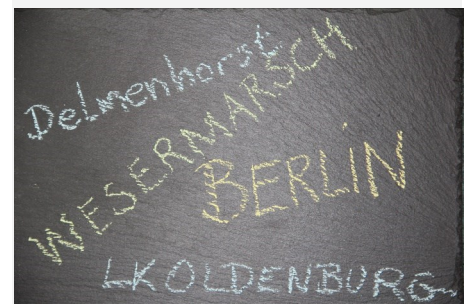 Delmenhorst
WESERMARSCH
BERLIN
LKOLDENBURG